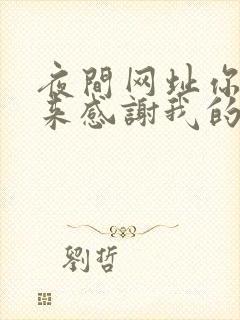 夜間网址你
来感謝我的
劉哲